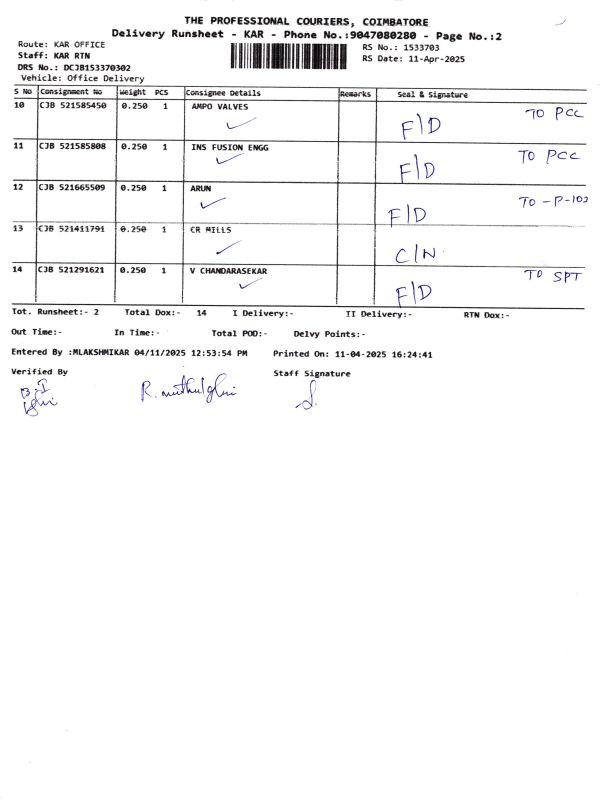 THE PROFESSIONAL COURIERS, COIMBATORE
Delivery Runsheet - KAR - Phone No.:9047080280 - Page No.:2
Route: KAR OFFICE RS No.: 1533703
Staff: KAR RTN RS Date: 11-Apr-2025
DRS No.: DCJB153370302
Vehicle: Office Delivery
S No Consignment No Weight PCS Consignee Details Remarks Seal & Signature
10 CJB 521585450 0.250 1 AMPO VALVES F/D TO PCC
11 CJB 521585808 0.250 1 INS FUSION ENGG F/D TO PCC
12 CJB 521665509 0.250 1 ARUN F/D TO -P-102
13 CJB 521411791 0.250 1 CR MILLS C/N
14 CJB 521291621 0.250 1 V CHANDARASEKAR F/D TO SPT
Tot. Runsheet:- 2 Total Dox:- 14 I Delivery:- II Delivery:- RTN Dox:-
Out Time:- In Time:- Total POD:- Delvy Points:-
Entered By :MLAKSHMIKAR 04/11/2025 12:53:54 PM Printed On: 11-04-2025 16:24:41
Verified By Staff Signature